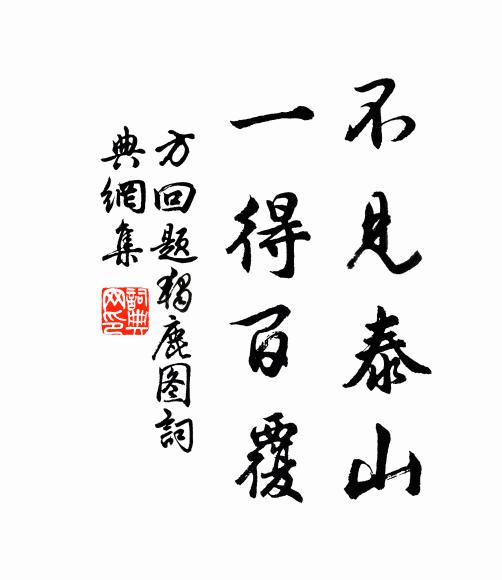 不見泰山
一得百覆
方回題獨鹿图詞
典網集
詞典
网印